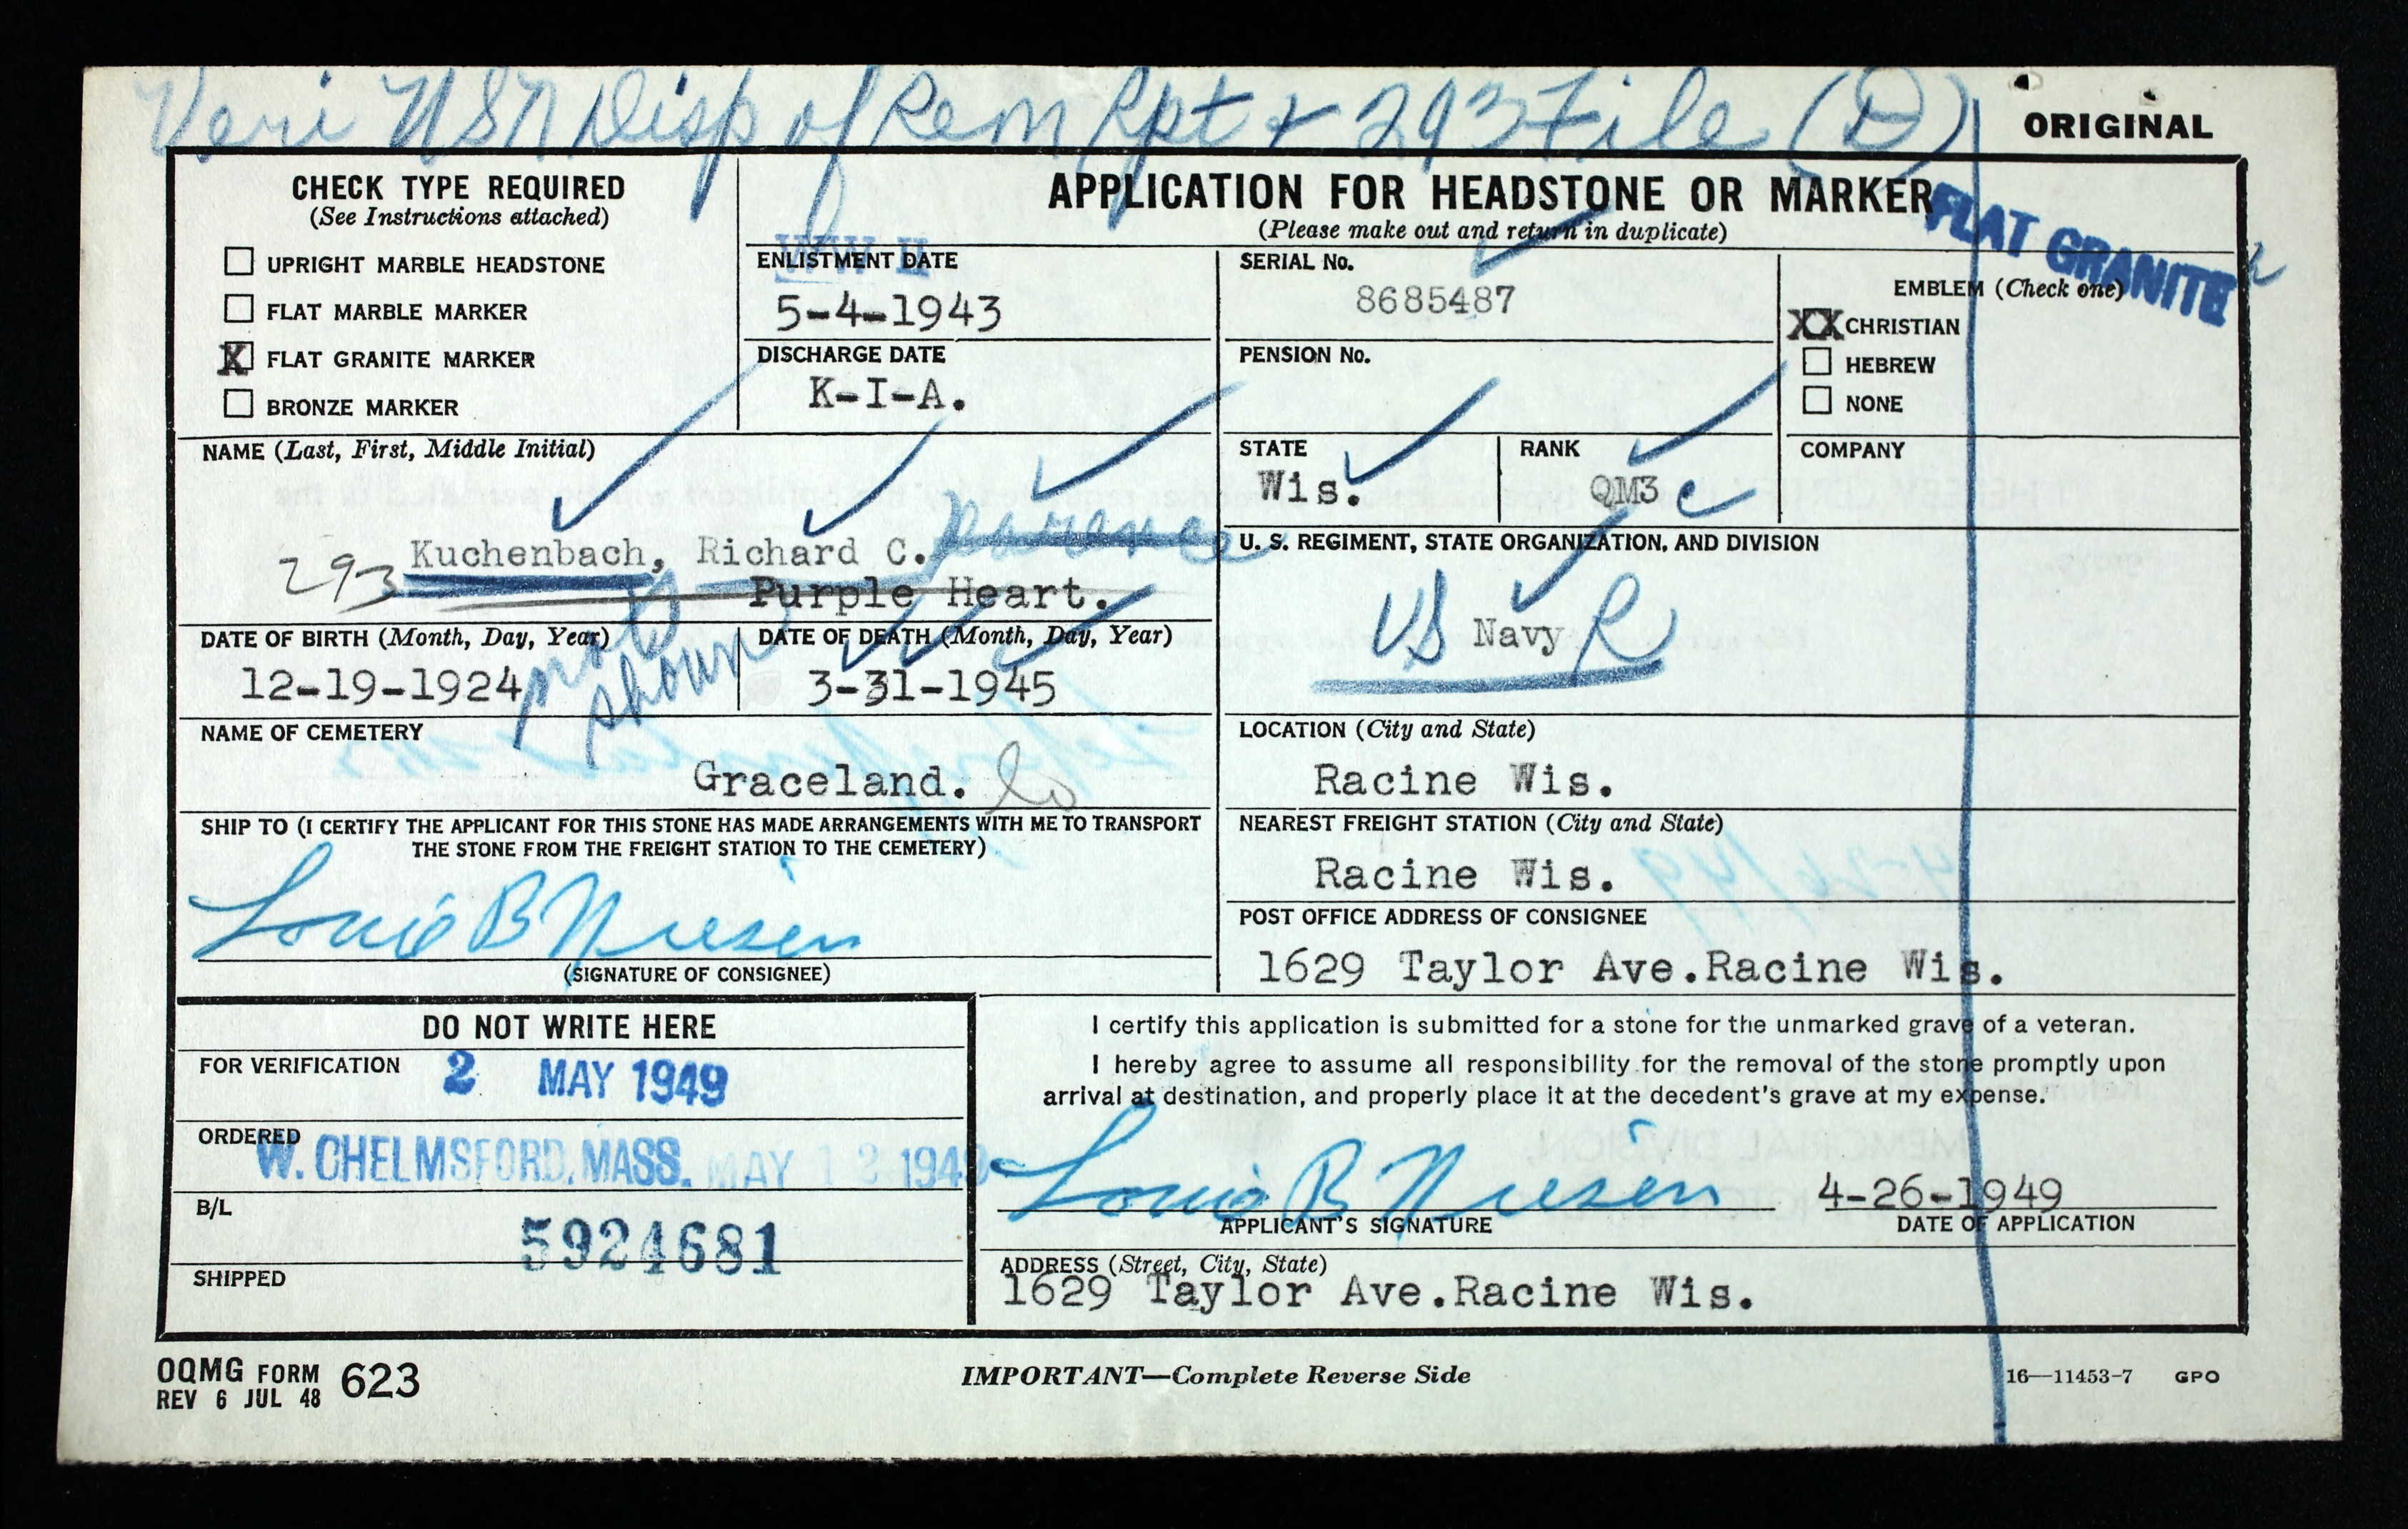 Veri USN Disp of Rem Rpt & 293 File (D)
ORIGINAL
CHECK TYPE REQUIRED
(See Instructions attached)
UPRIGHT MARBLE HEADSTONE
FLAT MARBLE MARKER
X FLAT GRANITE MARKER
BRONZE MARKER
APPLICATION FOR HEADSTONE OR MARKER
(Please make out and return in duplicate)
FLAT GRANITE
WW II
ENLISTMENT DATE
5-4-1943
DISCHARGE DATE
K-I-A.
SERIAL No.
8685487
PENSION No.
EMBLEM (Check one)
XX CHRISTIAN
HEBREW
NONE
NAME (Last, First, Middle Initial)
293 Kuchenbach, Richard C.
Purple Heart.
not shown
STATE
Wis.
RANK
QM3 c
COMPANY
U. S. REGIMENT, STATE ORGANIZATION, AND DIVISION
US Navy R
DATE OF BIRTH (Month, Day, Year)
12-19-1924
DATE OF DEATH (Month, Day, Year)
3-31-1945
NAME OF CEMETERY
Graceland.
LOCATION (City and State)
Racine Wis.
SHIP TO (I CERTIFY THE APPLICANT FOR THIS STONE HAS MADE ARRANGEMENTS WITH ME TO TRANSPORT
THE STONE FROM THE FREIGHT STATION TO THE CEMETERY)
Louis B Niesen
(SIGNATURE OF CONSIGNEE)
NEAREST FREIGHT STATION (City and State)
Racine Wis.
POST OFFICE ADDRESS OF CONSIGNEE
1629 Taylor Ave.Racine Wis.
DO NOT WRITE HERE
FOR VERIFICATION 2 MAY 1949
ORDERED
W. CHELMSFORD, MASS. MAY 12 1949
B/L
5924681
SHIPPED
I certify this application is submitted for a stone for the unmarked grave of a veteran.
I hereby agree to assume all responsibility for the removal of the stone promptly upon
arrival at destination, and properly place it at the decedent's grave at my expense.
Louis B Niesen 4-26-1949
APPLICANT'S SIGNATURE DATE OF APPLICATION
ADDRESS (Street, City, State)
1629 Taylor Ave.Racine Wis.
OQMG FORM 623
REV 6 JUL 48
IMPORTANT—Complete Reverse Side
16—11453-7 GPO